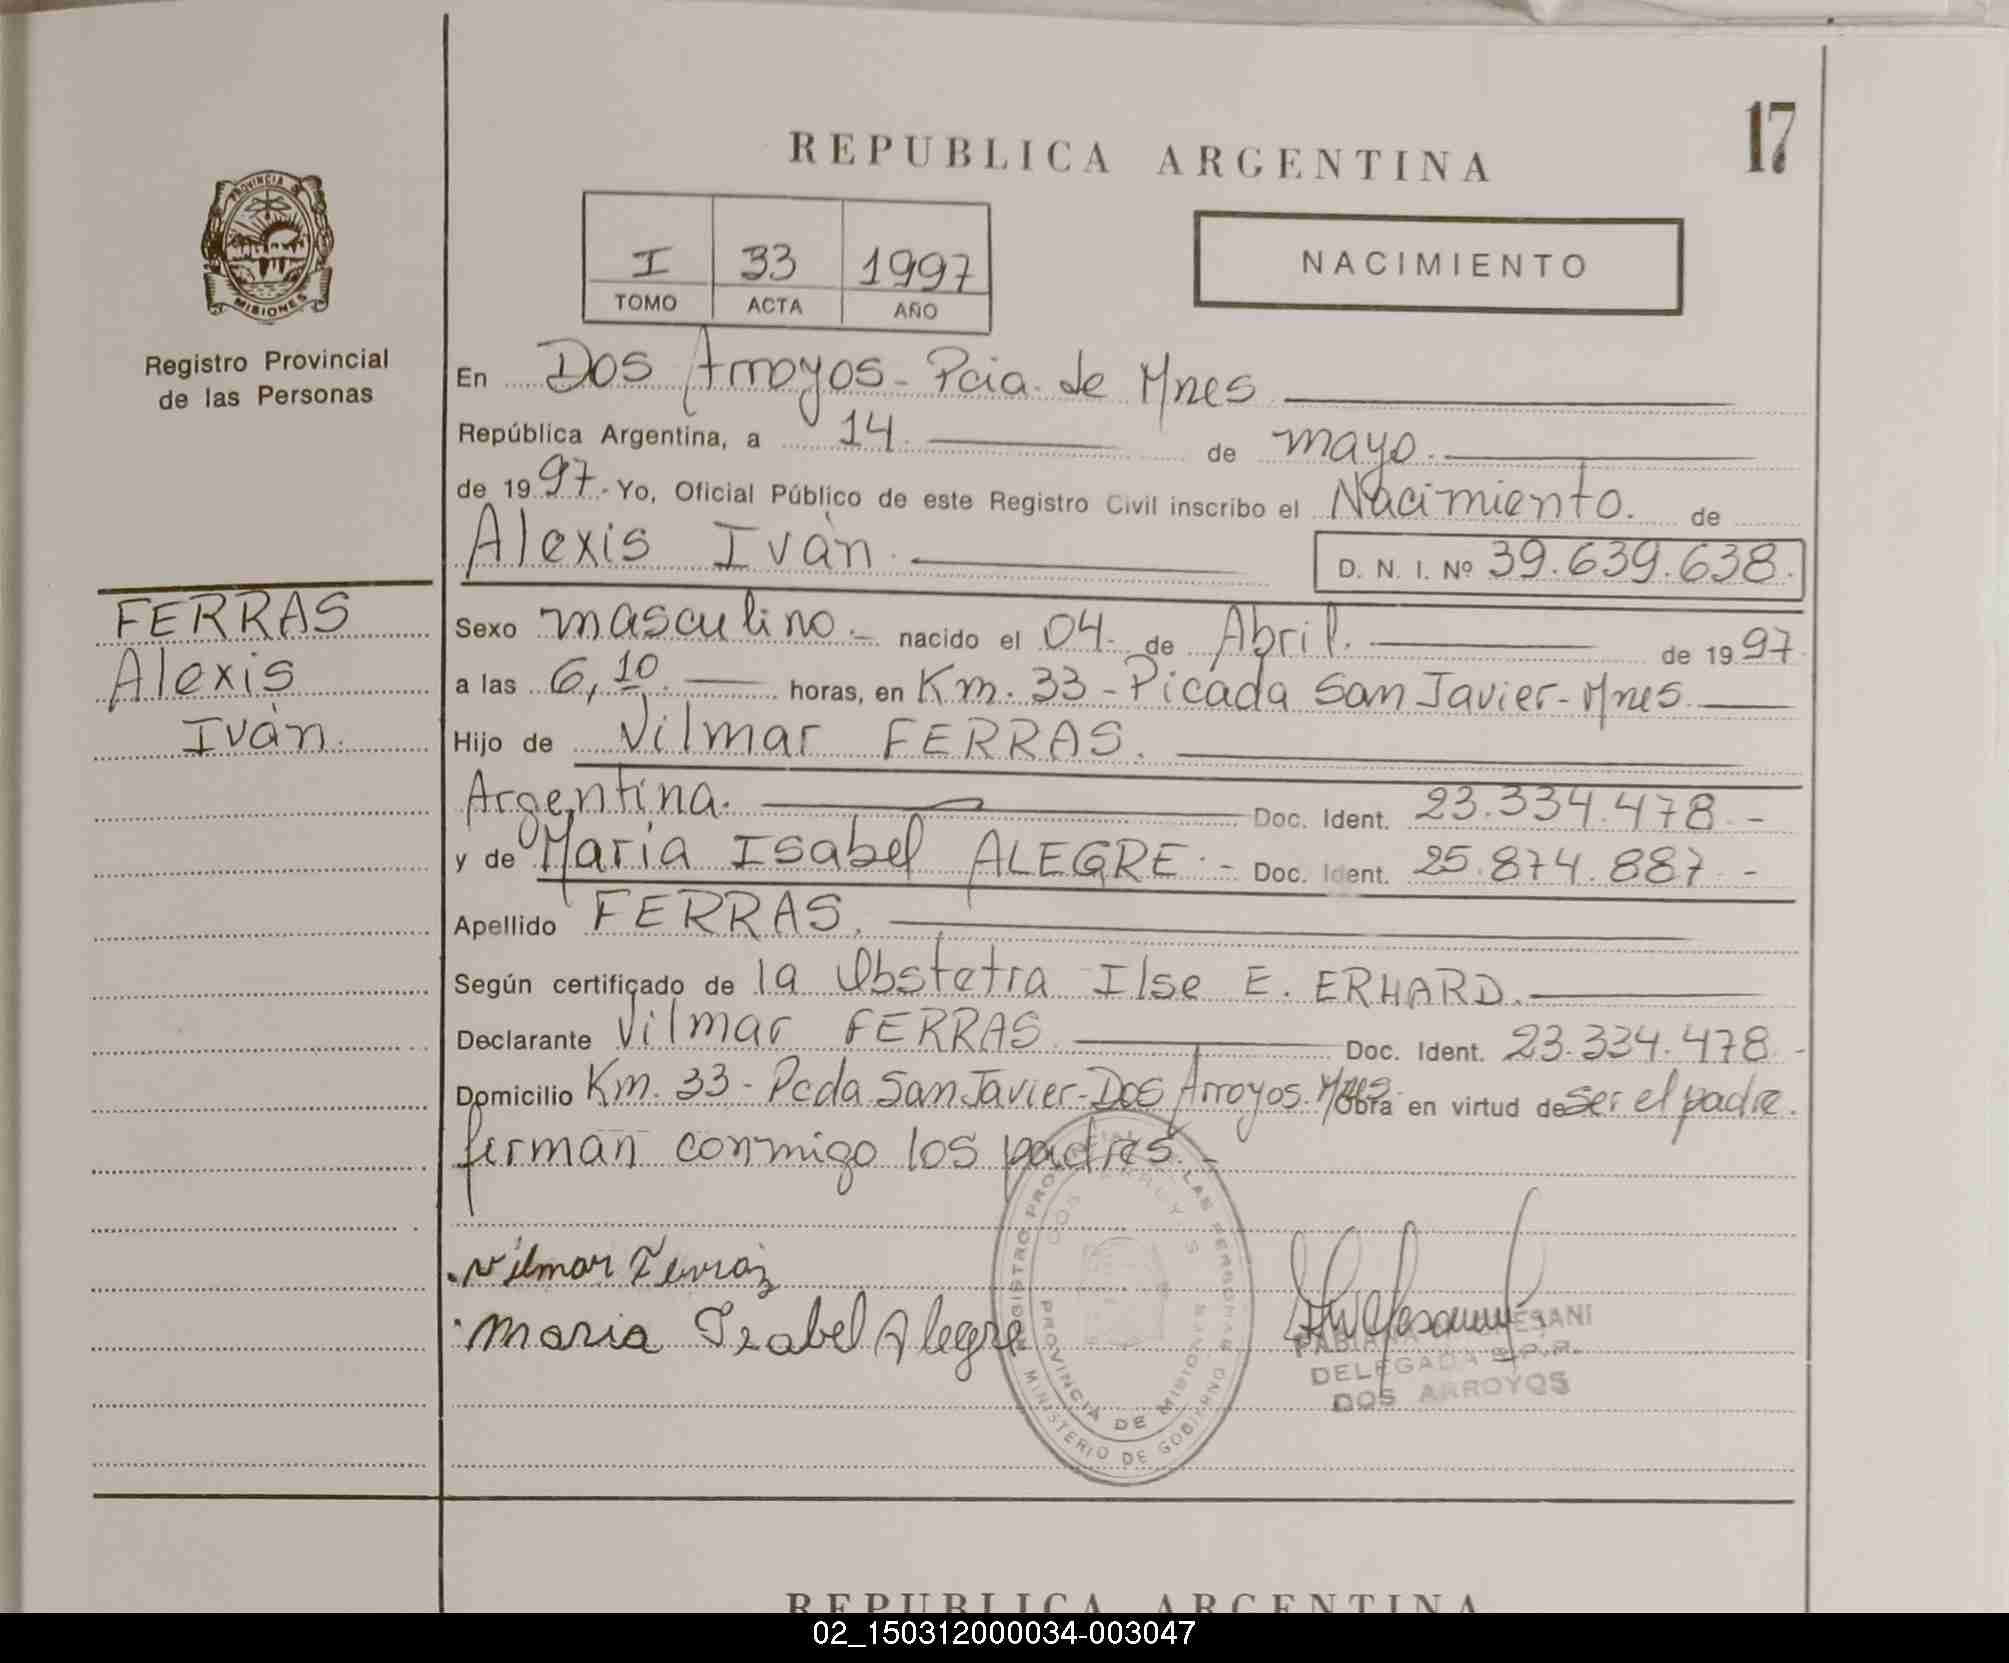 17
REPUBLICA ARGENTINA
PROVINCIA DE
MISIONES
Registro Provincial
de las Personas
I 33 1997
TOMO ACTA AÑO
NACIMIENTO
En Dos Arroyos - Pcia. de Mnes
República Argentina, a 14. de mayo.
de 1997.- Yo, Oficial Público de este Registro Civil inscribo el Nacimiento. de
Alexis Iván. D. N. I. Nº 39.639.638.
FERRAS
Alexis
Iván.
Sexo masculino.- nacido el 04. de Abril. de 1997
a las 6,10. horas, en Km. 33 - Picada San Javier - Mnes.
Hijo de Vilmar FERRAS.
Argentina. Doc. Ident. 23.334.478.-
y de María Isabel ALEGRE.- Doc. Ident. 25.874.887.-
Apellido FERRAS.
Según certificado de la Obstetra Ilse E. ERHARD.
Declarante Vilmar FERRAS Doc. Ident. 23.334.478.-
Domicilio Km. 33 - Pcda San Javier - Dos Arroyos. Mnes. Obra en virtud de ser el padre.
firman conmigo los padres.-
Vilmar Ferraz
Maria Izabel Alegre
REGISTRO PROVINCIAL DE LAS PERSONAS
DOS ARROYOS
PROVINCIA DE MISIONES
MINISTERIO DE GOBIERNO
DELEGADA R.P.P.
DOS ARROYOS
REPUBLICA ARGENTINA
02_150312000034-003047